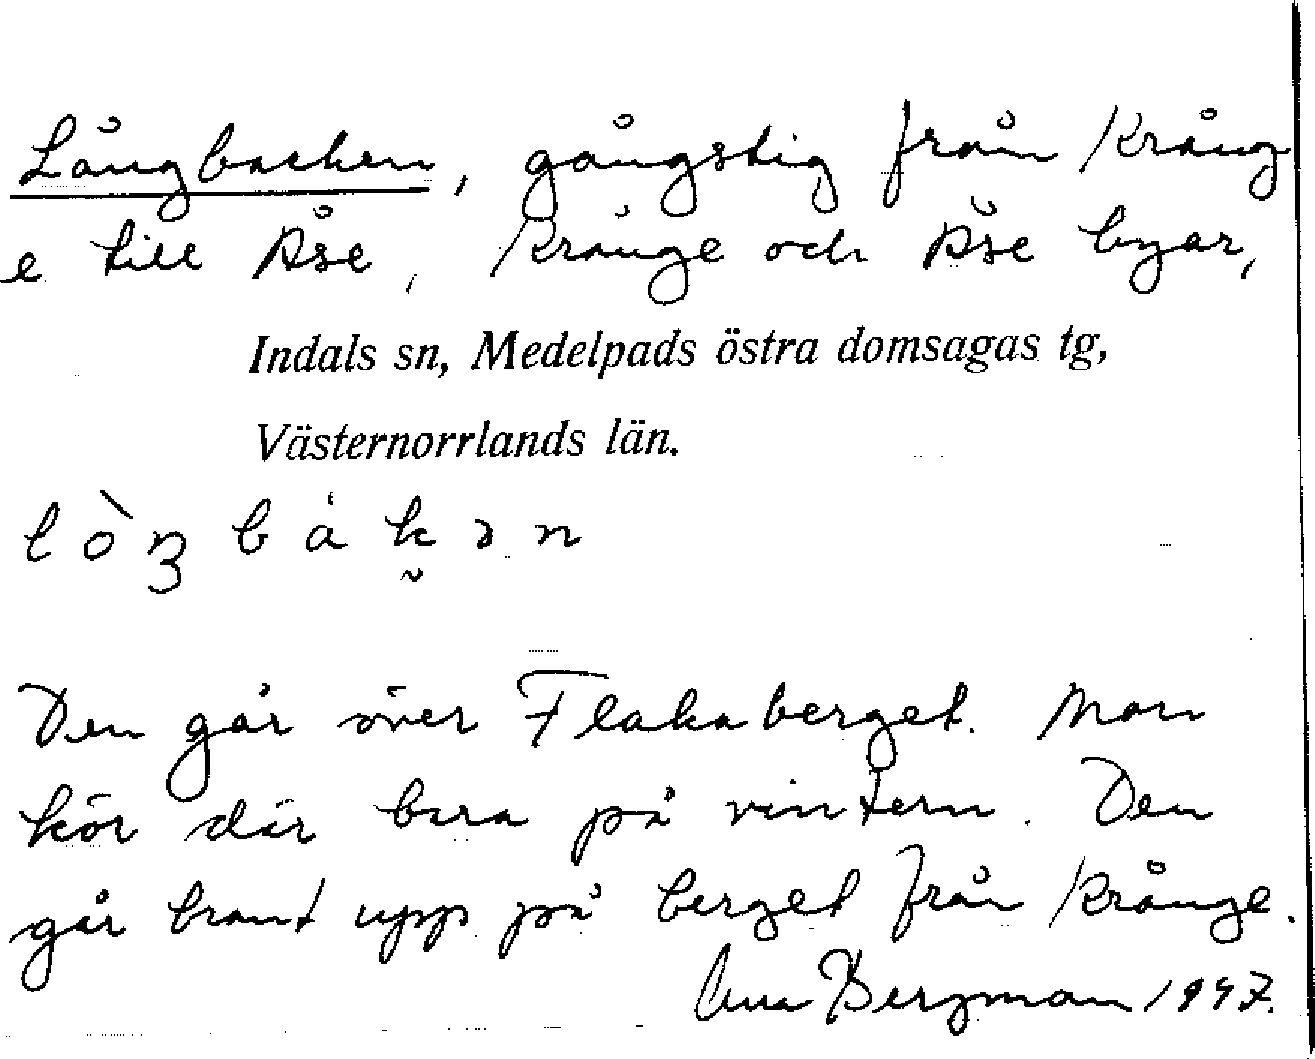 Långbacken, gångstig från Krång
e till Åse, Krånge och Åse byar,
Indals sn, Medelpads östra domsagas tg,
Västernorrlands län.
lòŋbákən
Den går över Flakaberget. Man
kör där bara på vintern. Den
går brant upp på berget från Krånge.
Bergman 1947.